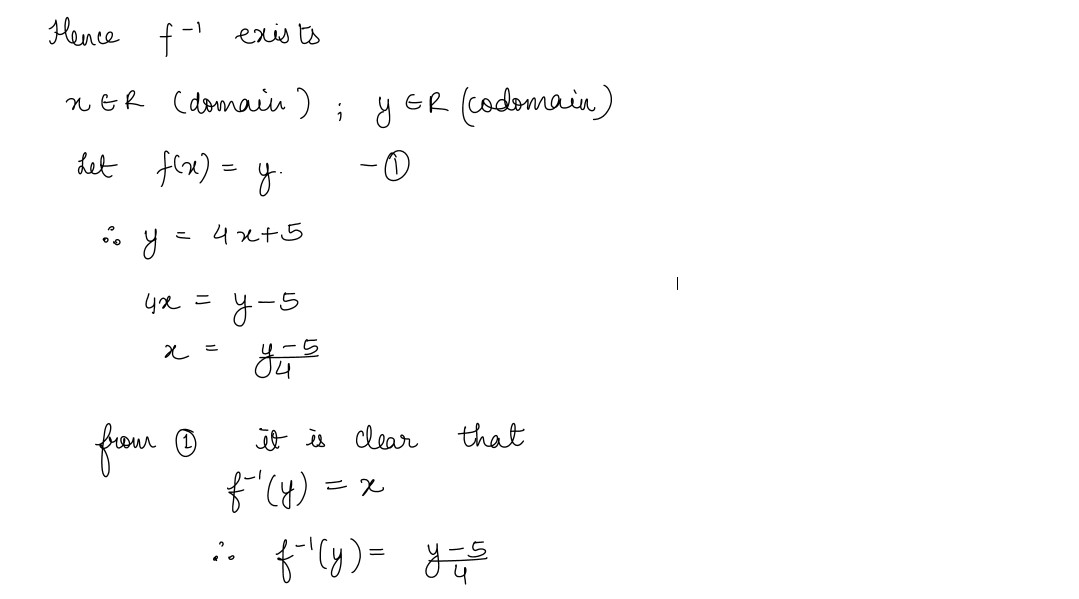 Hence f⁻¹ exists
x ∈ R (domain) ; y ∈ R (codomain)
Let f(x) = y. -①
∴ y = 4x+5
4x = y-5
x = (y-5)/4
from ① it is clear that
f⁻¹(y) = x
∴ f⁻¹(y) = (y-5)/4